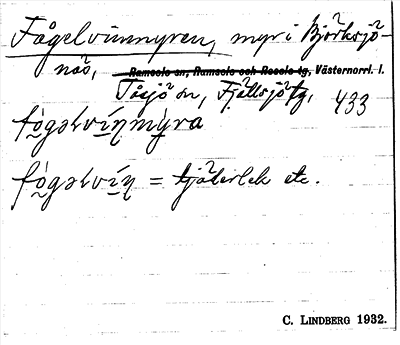 Fågelvinnmyren, myr i Björksjö-
näs, Ramsele sn, Ramsele och Resele tg, Västernorrl. l.
Tåsjö sn, Fjällsjö tg, 433
fògəlvíŋmỳra
fògəlvíŋ = tjäderlek etc.
C. LINDBERG 1932.